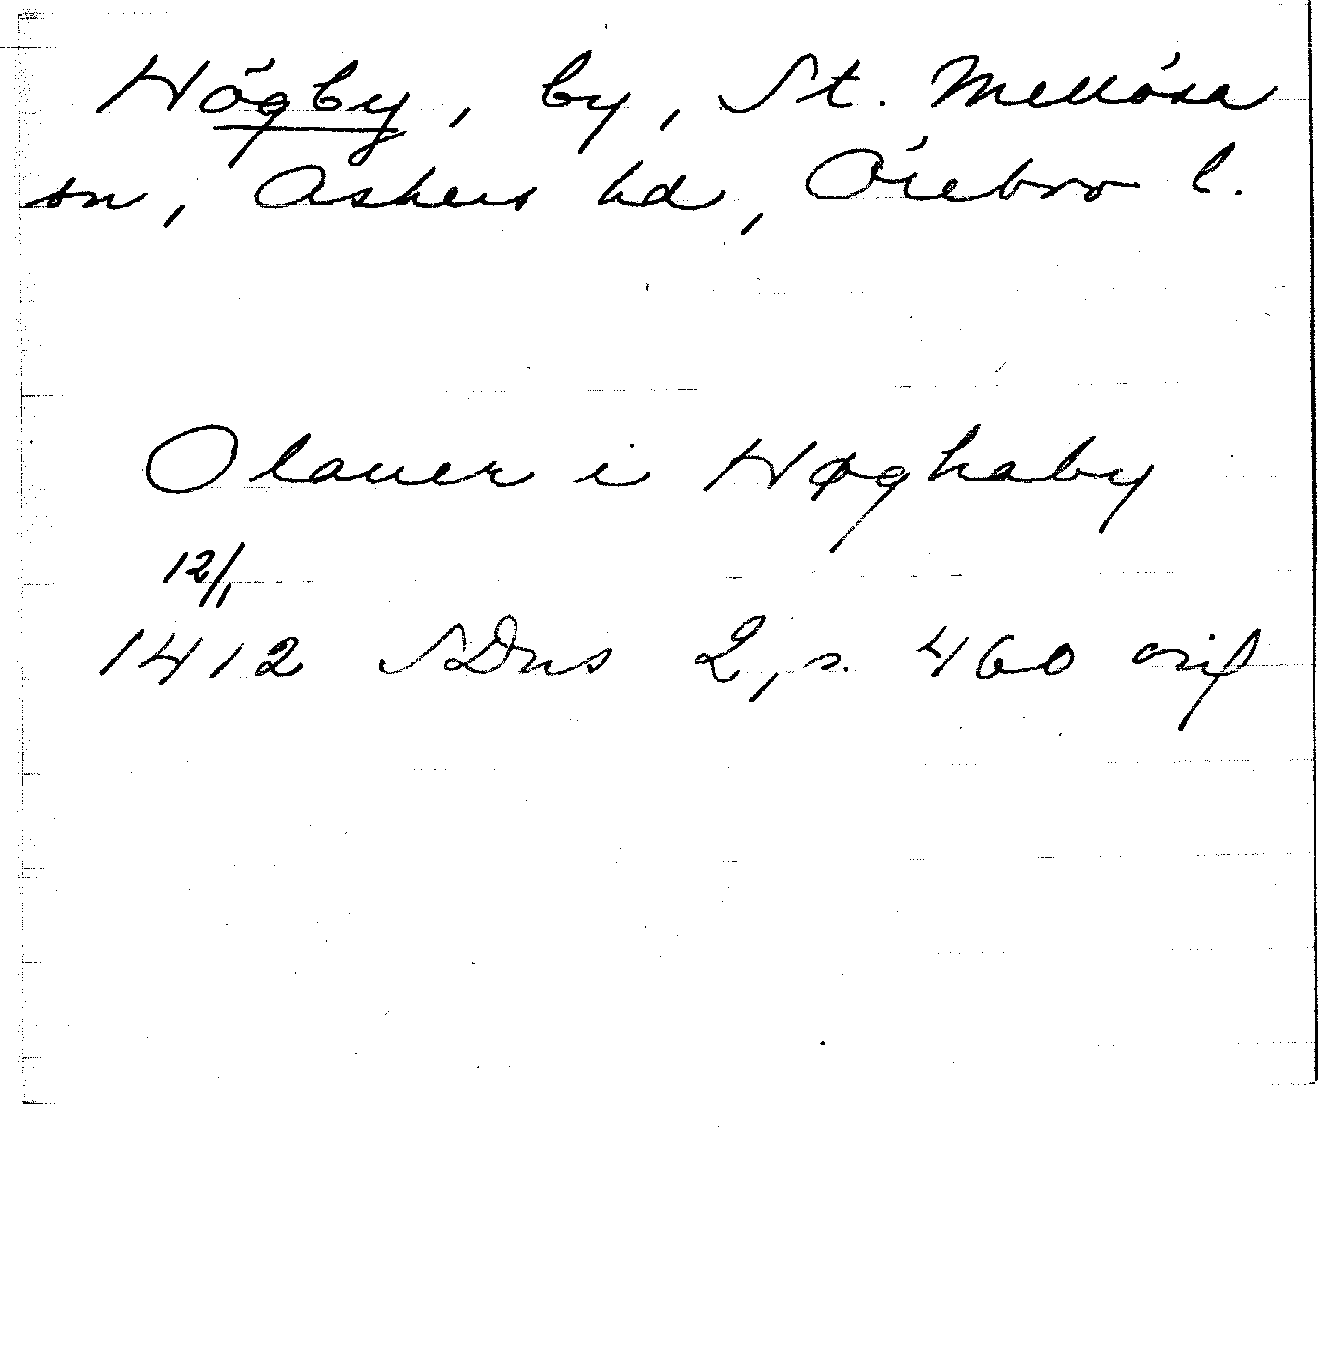 Högby, by, St. Mellösa
sn, Askers hd, Örebro l.
Olauer i Høghaby
12/1
1412 SDns 2, s. 460 orig